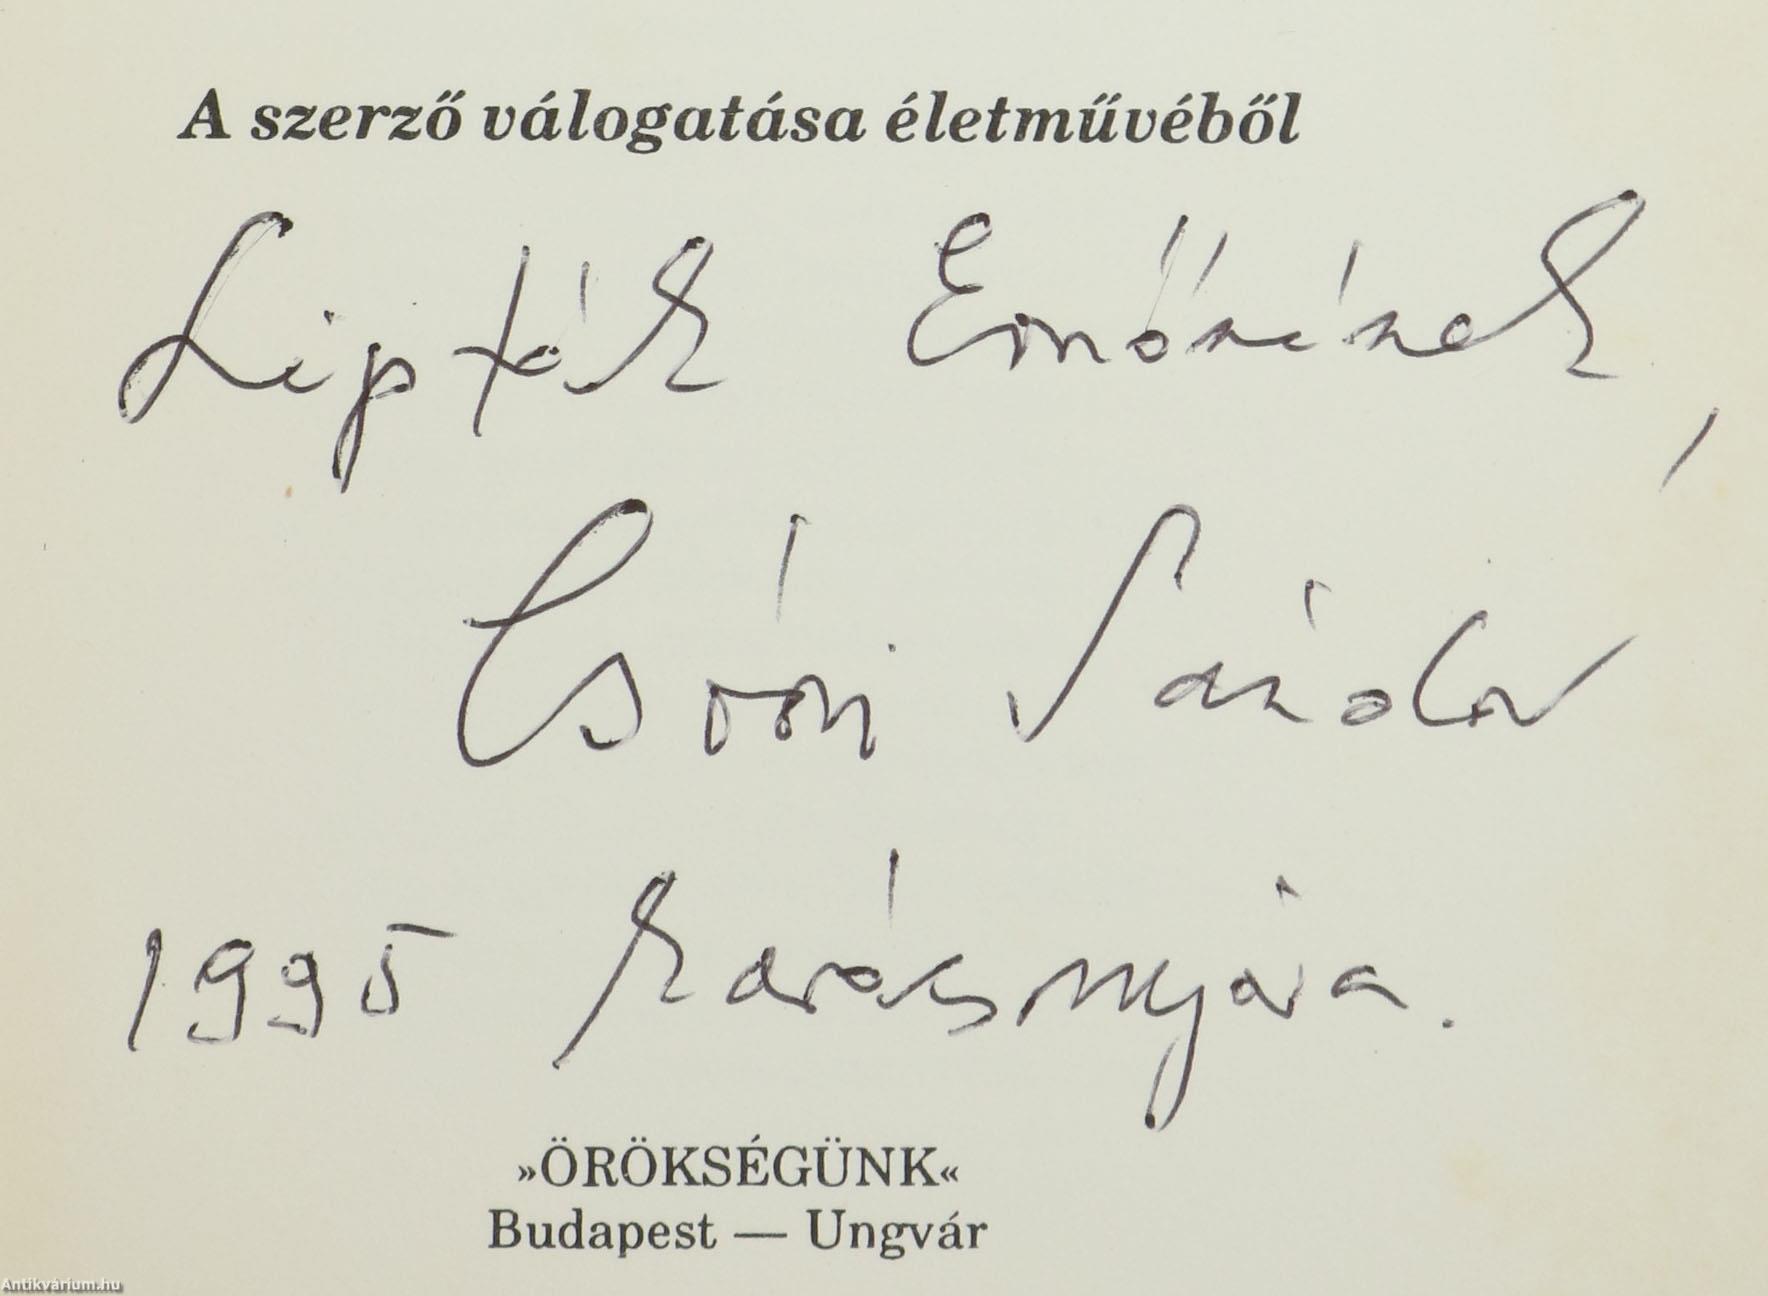 A szerző válogatása életművéből
Lipták Ernőnének,
Csoóri Sándor
1995 karácsonyára.
»ÖRÖKSÉGÜNK«
Budapest — Ungvár
Antikvárium.hu